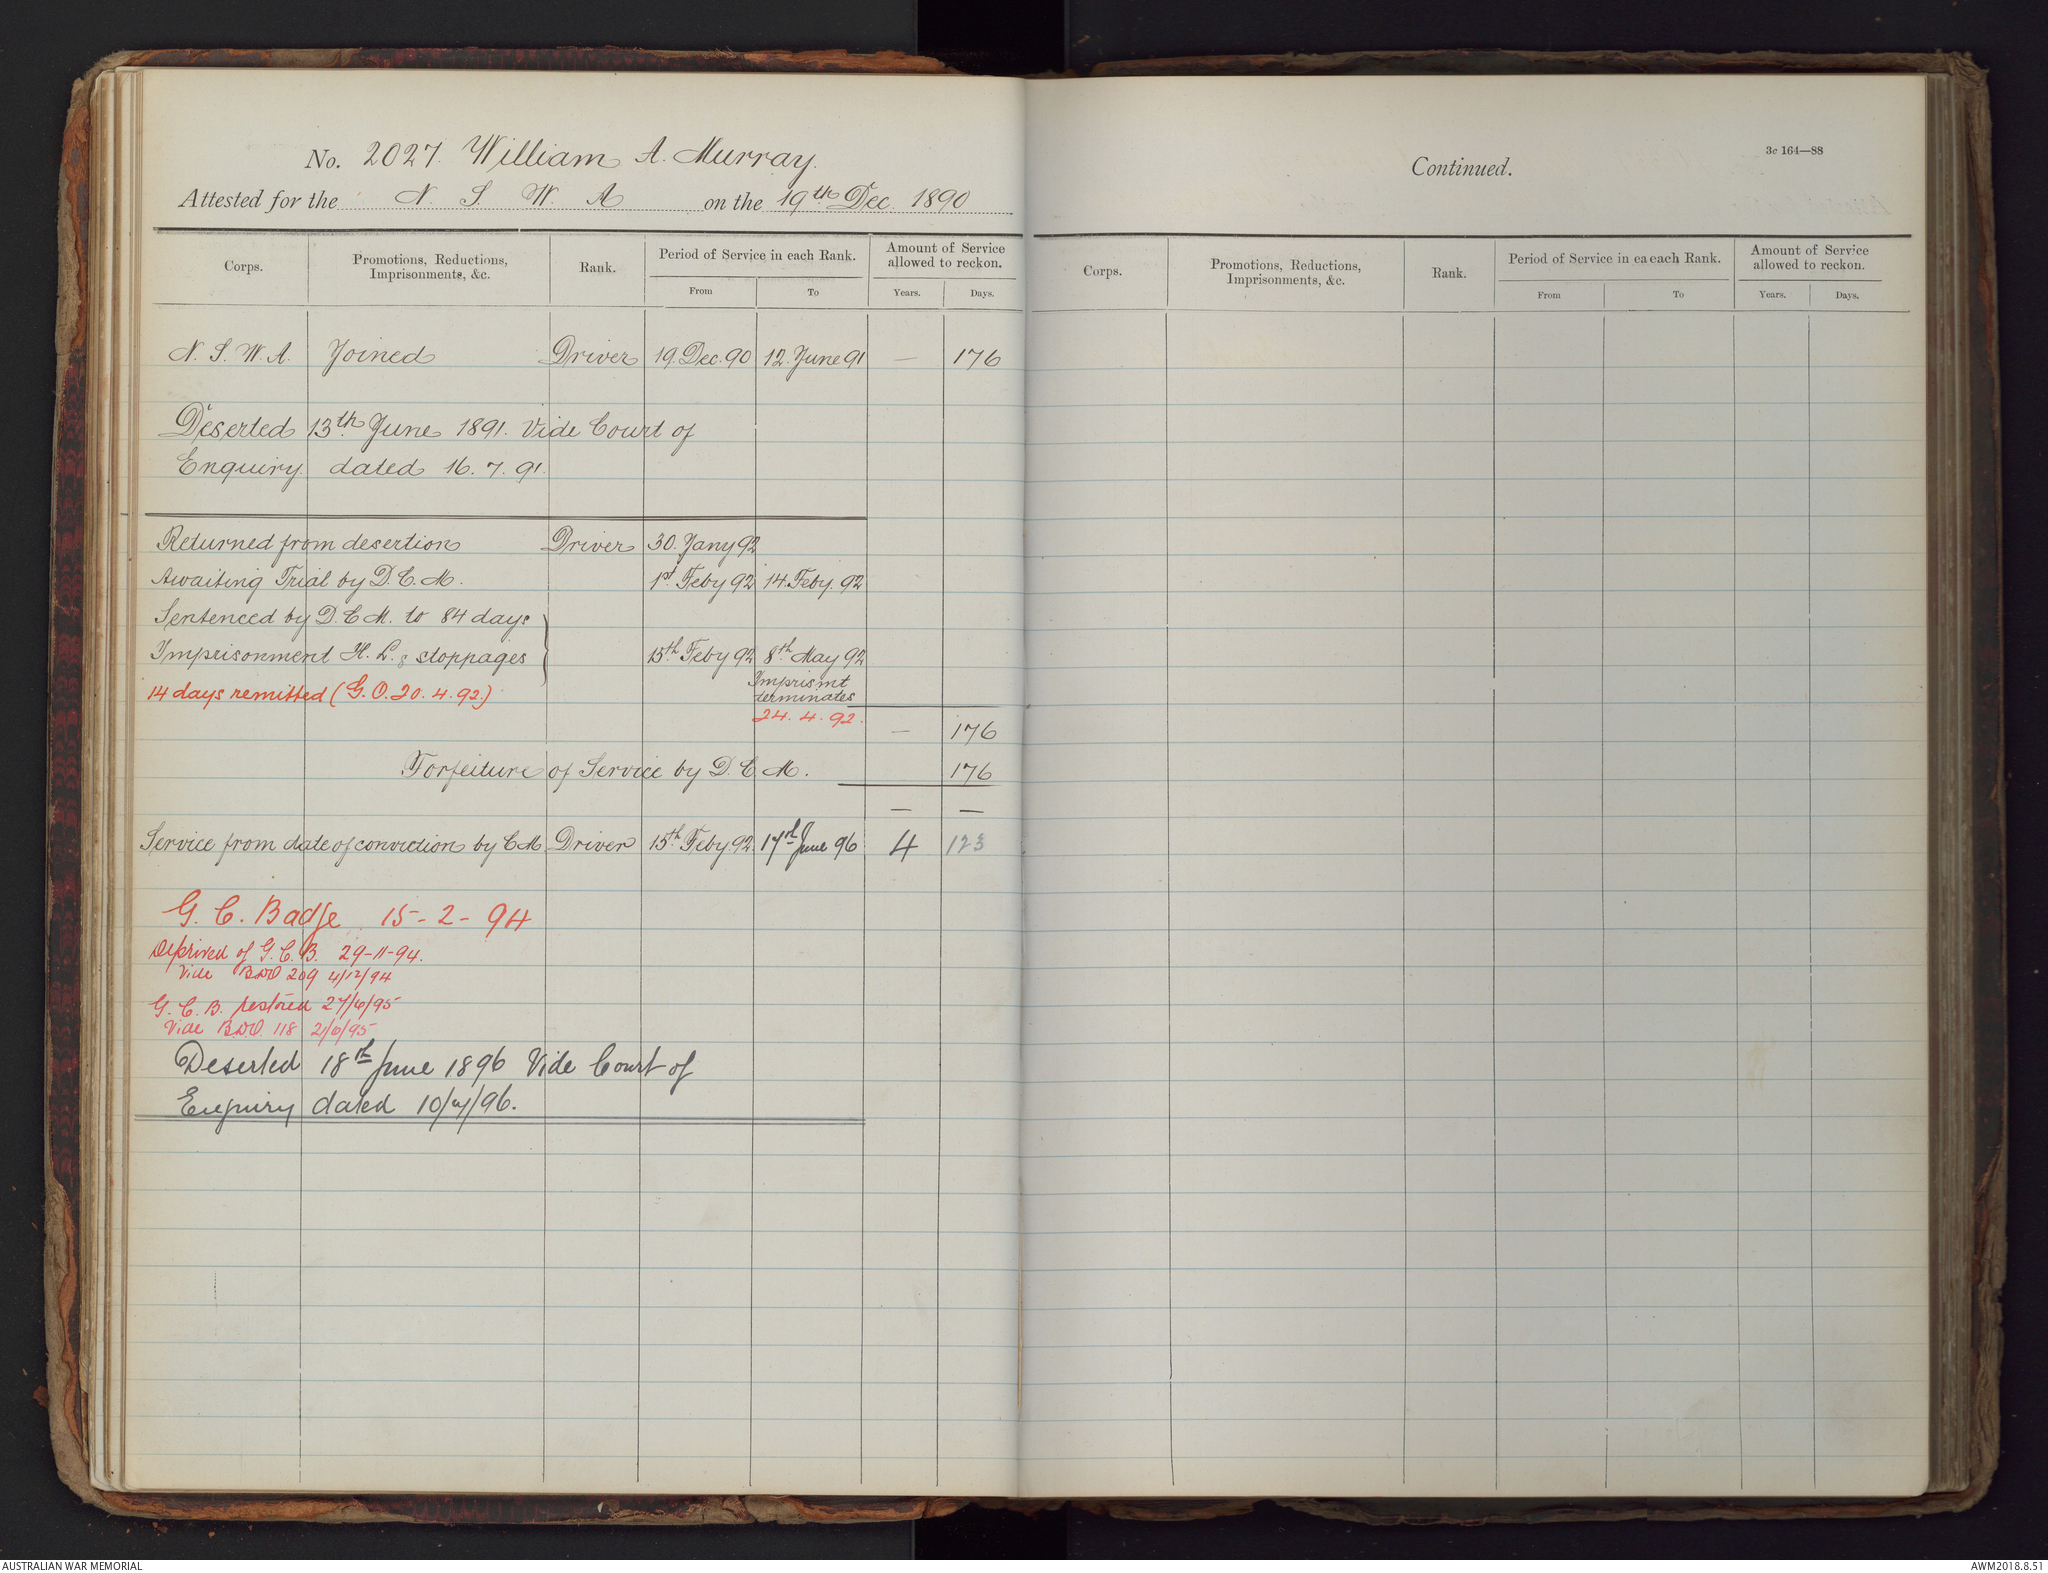 No. 2027. William A. Murray.
Attested for the N. S. W. A on the 19th Dec. 1890
Corps. Promotions, Reductions, Imprisonments, &c. Rank. Period of Service in each Rank. Amount of Service allowed to reckon.
From To Years. Days.
N. S. W. A. Joined Driver 19. Dec. 90 12. June 91 — 176
Deserted 13th June 1891. Vide Court of
Enquiry dated 16. 7. 91.
Returned from desertion Driver 30. Jany 92
Awaiting Trial by D. C. M. 1st Feby 92 14. Feby. 92
Sentenced by D. C. M. to 84 days
Imprisonment H. L. & stoppages 15th Feby 92 8th May 92
14 days remitted (G. O. 20. 4. 92) Imprismt
terminates
24. 4. 92.
— 176
Forfeiture of Service by D. C. M. 176
— —
Service from date of conviction by C M Driver 15th Feby. 92. 17th June 96 4 123
G. C. Badge 15 - 2 - 94
Deprived of G. C. B. 29-11-94.
Vide BDO 209 4/12/94
G. C. B. restored 27/6/95
Vide B.D.O. 118 21/6/95
Deserted 18th June 1896 Vide Court of
Enquiry dated 10/7/96.
3c 164—88
Continued.
Corps. Promotions, Reductions, Imprisonments, &c. Rank. Period of Service in ea each Rank. Amount of Service allowed to reckon.
From To Years. Days.
AUSTRALIAN WAR MEMORIAL
AWM2018.8.51